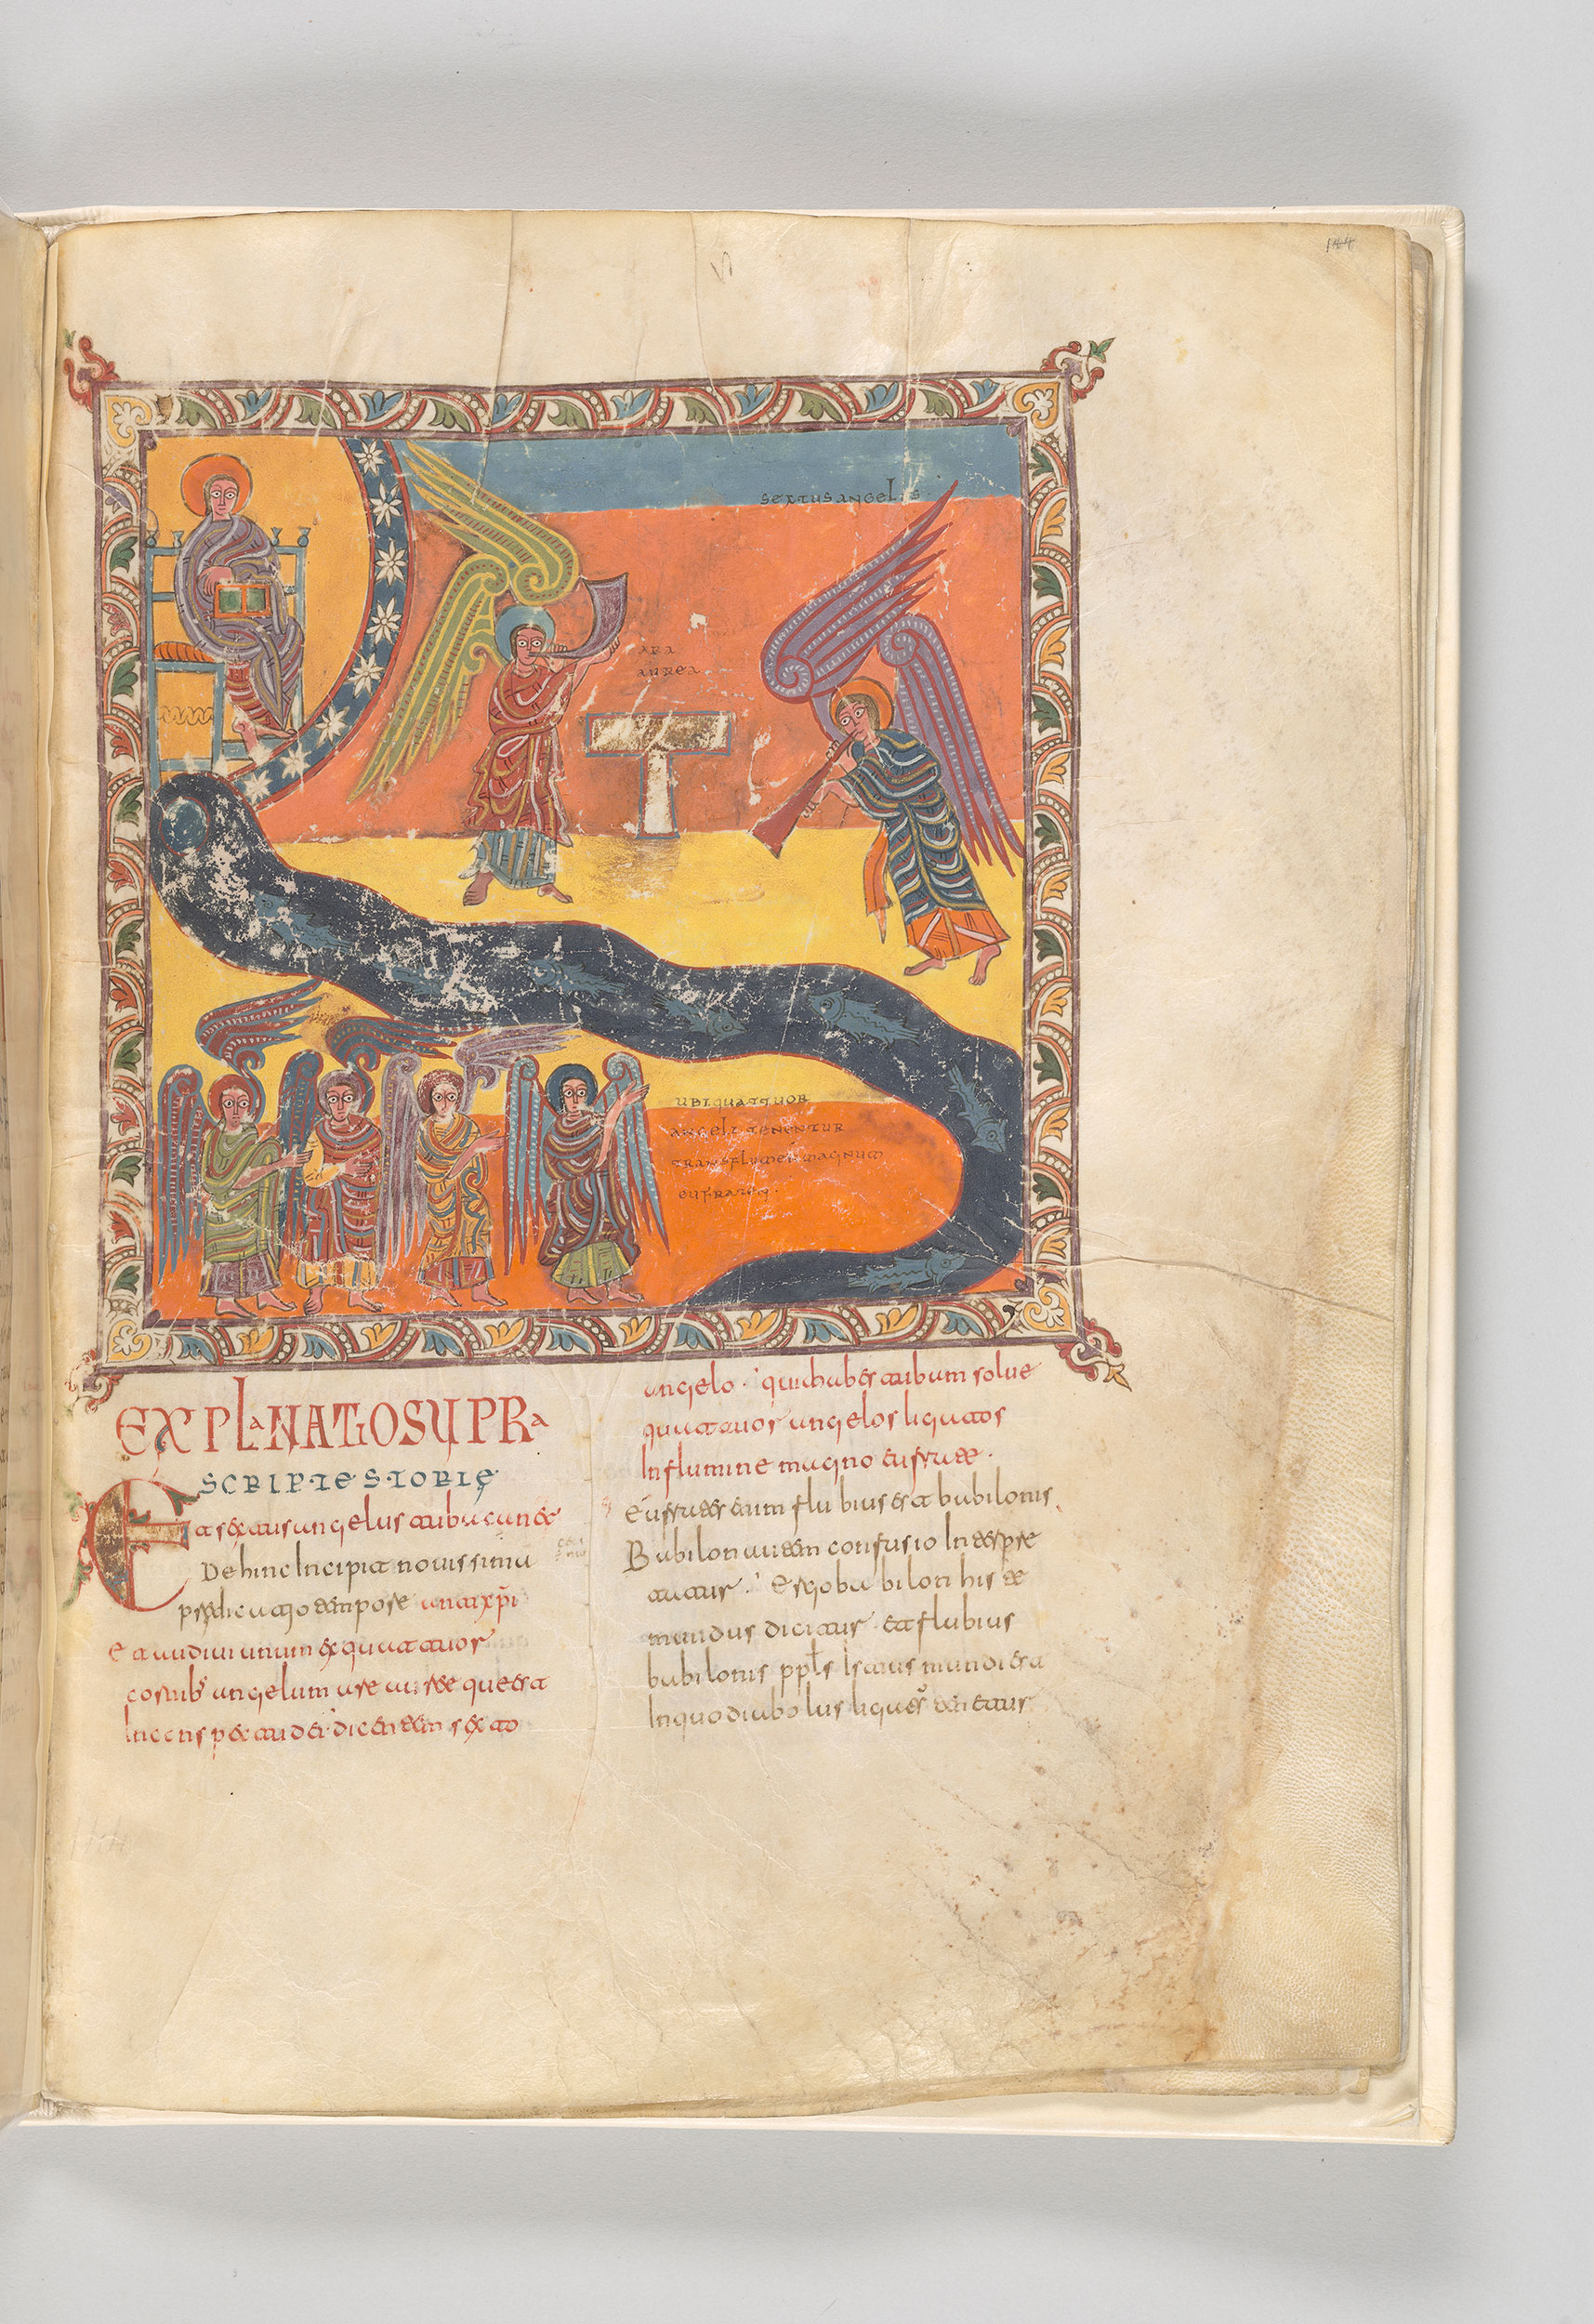 144
SEXTUS ANGELUS
ARA
AUREA
UBI QUATTUOR
ANGELI TENENTUR
TRANS FLUMEN MAGNUM
EUFRATEN
EXPLaNATIO SUPRa
SCRIPTE STORIE
Et sextus angelus tuba cunet
Dehinc Incipit nouissima
predicatio tempore
Et audiui unum ex quattuor
cornib angelum are auree que est
In conspectu dei dicentem sexto
angelo · qui habes tubam solue
quattuor angelos ligatos
In flumine magno eufrate ·
Eufrates enim flubius est babilonis
Babilon autem confusio Interpre
tatur · Ergo babilon hic
mundus dicitur et flubius
babilonis ppls mundi est
In quo diabolus ligatus tenetur